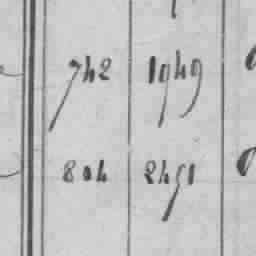 742 1949
804 2451